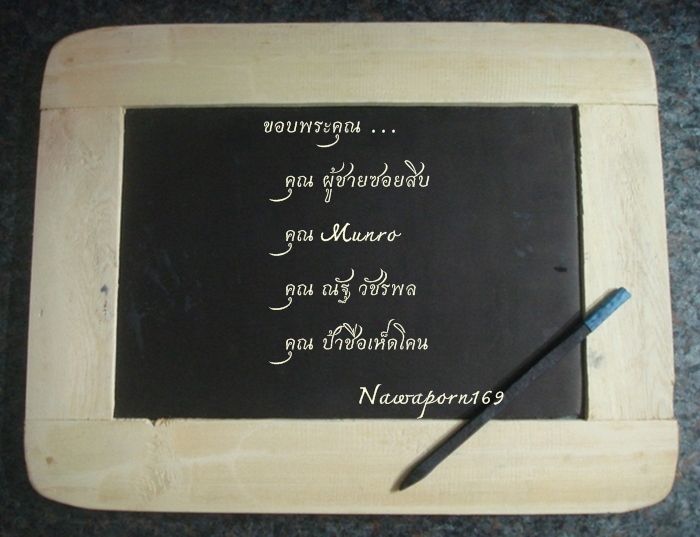 ขอบพระคุณ ...
คุณ ผู้ชายซอยสิบ
คุณ Munro
คุณ ณัฐ วัชรพล
คุณ ป้าชื่อเห็ดโคน
Nawaporn169